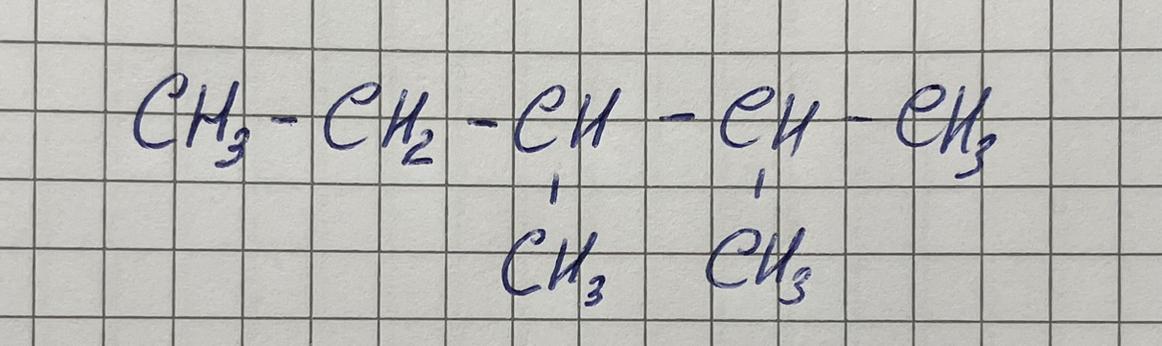 CH₃ - CH₂ - CH - CH - CH₃
CH₃ CH₃